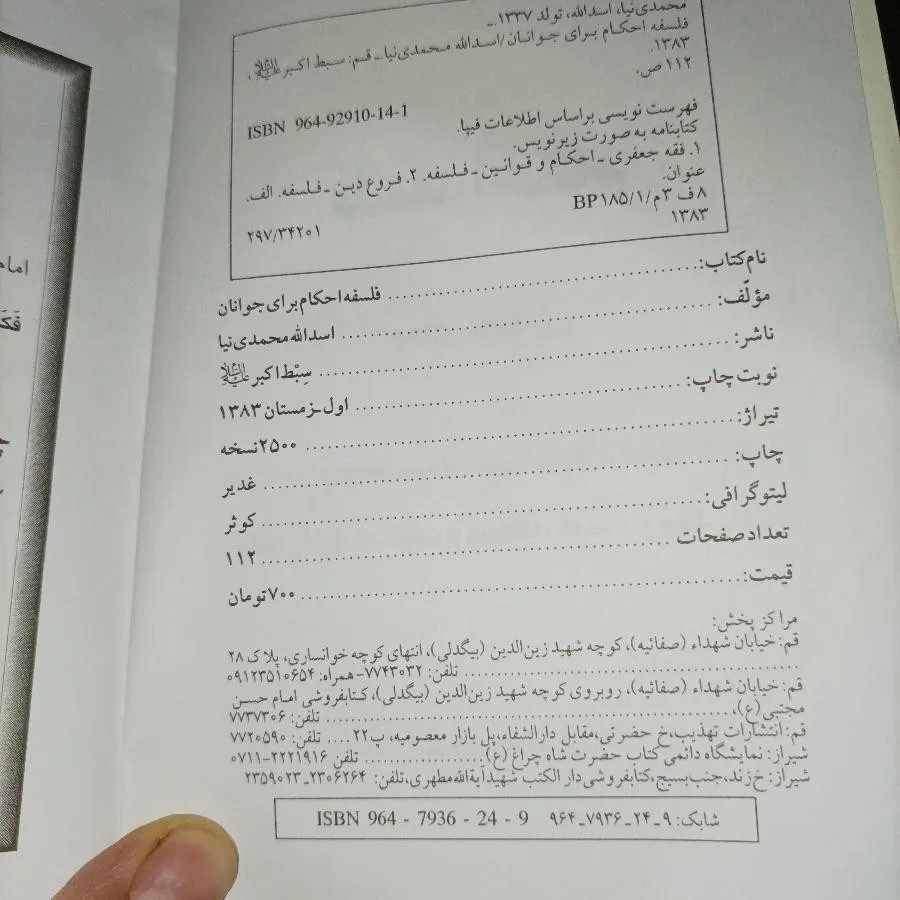 محمدی‌نیا، اسدالله، تولد ۱۳۳۷ ـ
فلسفه احکام برای جوانان/اسدالله محمدی‌نیا.ـ قم: سبط اکبر علیه‌السلام،
۱۳۸۳.
۱۱۲ ص.
ISBN 964-92910-14-1
فهرست نویسی براساس اطلاعات فیپا.
کتابنامه به صورت زیرنویس.
۱. فقه جعفری ـ احکام و قوانین ـ فلسفه. ۲. فروع دین ـ فلسفه. الف.
عنوان.
۸ف ۳م/۱/BP۱۸۵
۱۳۸۳
۲۹۷/۳۴۲۰۱
نام کتاب: فلسفه احکام برای جوانان
مؤلّف: اسدالله محمدی‌نیا
ناشر: سِبْط اکبر علیه‌السلام
نوبت چاپ: اول ـ زمستان ۱۳۸۳
تیراژ: ۲۵۰۰ نسخه
چاپ: غدیر
لیتوگرافی: کوثر
تعداد صفحات ۱۱۲
قیمت: ۷۰۰ تومان
مراکز پخش:
قم: خیابان شهداء (صفائیه)، کوچه شهید زین‌الدین (بیگدلی)، انتهای کوچه خوانساری، پلاک ۲۸
تلفن: ۷۷۴۳۰۳۲- همراه: ۰۹۱۲۳۵۱۰۶۵۴
قم: خیابان شهداء (صفائیه)، روبروی کوچه شهید زین‌الدین (بیگدلی)، کتابفروشی امام حسن
مجتبی(ع)، تلفن: ۷۷۳۷۳۰۶
قم: انتشارات تهذیب، خ حضرتی، مقابل دارالشفاء، پل بازار معصومیه، پ۲۲.... تلفن: ۷۷۲۰۵۹۰
شیراز: نمایشگاه دائمی کتاب حضرت شاه چراغ (ع) تلفن ۲۲۲۱۹۱۶-۰۷۱۱
شیراز: خ زند، جنب بسیج، کتابفروشی دار الکتب شهید آیةالله مطهری، تلفن: ۲۳۰۶۲۶۴ـ ۲۳۵۹۰۲۳
شابک: ۹ـ ۲۴ـ ۷۹۳۶ـ ۹۶۴ ISBN 964 - 7936 - 24 - 9
امام